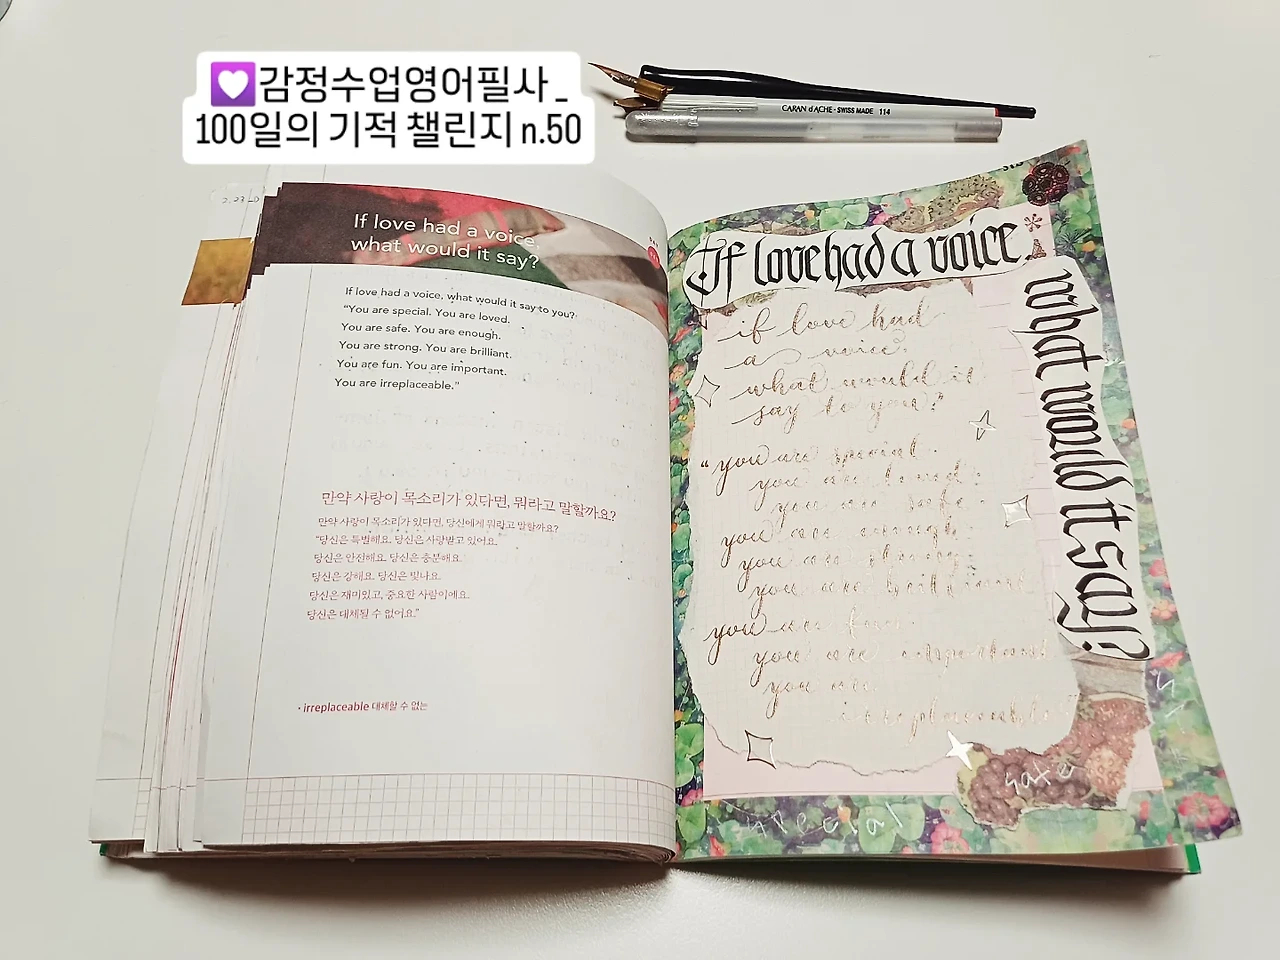 💟감정수업영어필사_
100일의 기적 챌린지 n.50
CARAN d'ACHE · SWISS MADE 114
If love had a voice,
what would it say?
If love had a voice, what would it say to you?
“You are special. You are loved.
You are safe. You are enough.
You are strong. You are brilliant.
You are fun. You are important.
You are irreplaceable.”
만약 사랑이 목소리가 있다면, 뭐라고 말할까요?
만약 사랑이 목소리가 있다면, 당신에게 뭐라고 말할까요?
“당신은 특별해요. 당신은 사랑받고 있어요.
당신은 안전해요. 당신은 충분해요.
당신은 강해요. 당신은 빛나요.
당신은 재미있고, 중요한 사람이에요.
당신은 대체될 수 없어요.”
• irreplaceable 대체할 수 없는
If love had a voice
what would it say?
if love had
a voice,
what would it
say to you?
“you are special.
you are loved.
you are safe.
you are enough.
you are strong.
you are brilliant
you are fun.
you are important
you are
irreplaceable”
safe
special